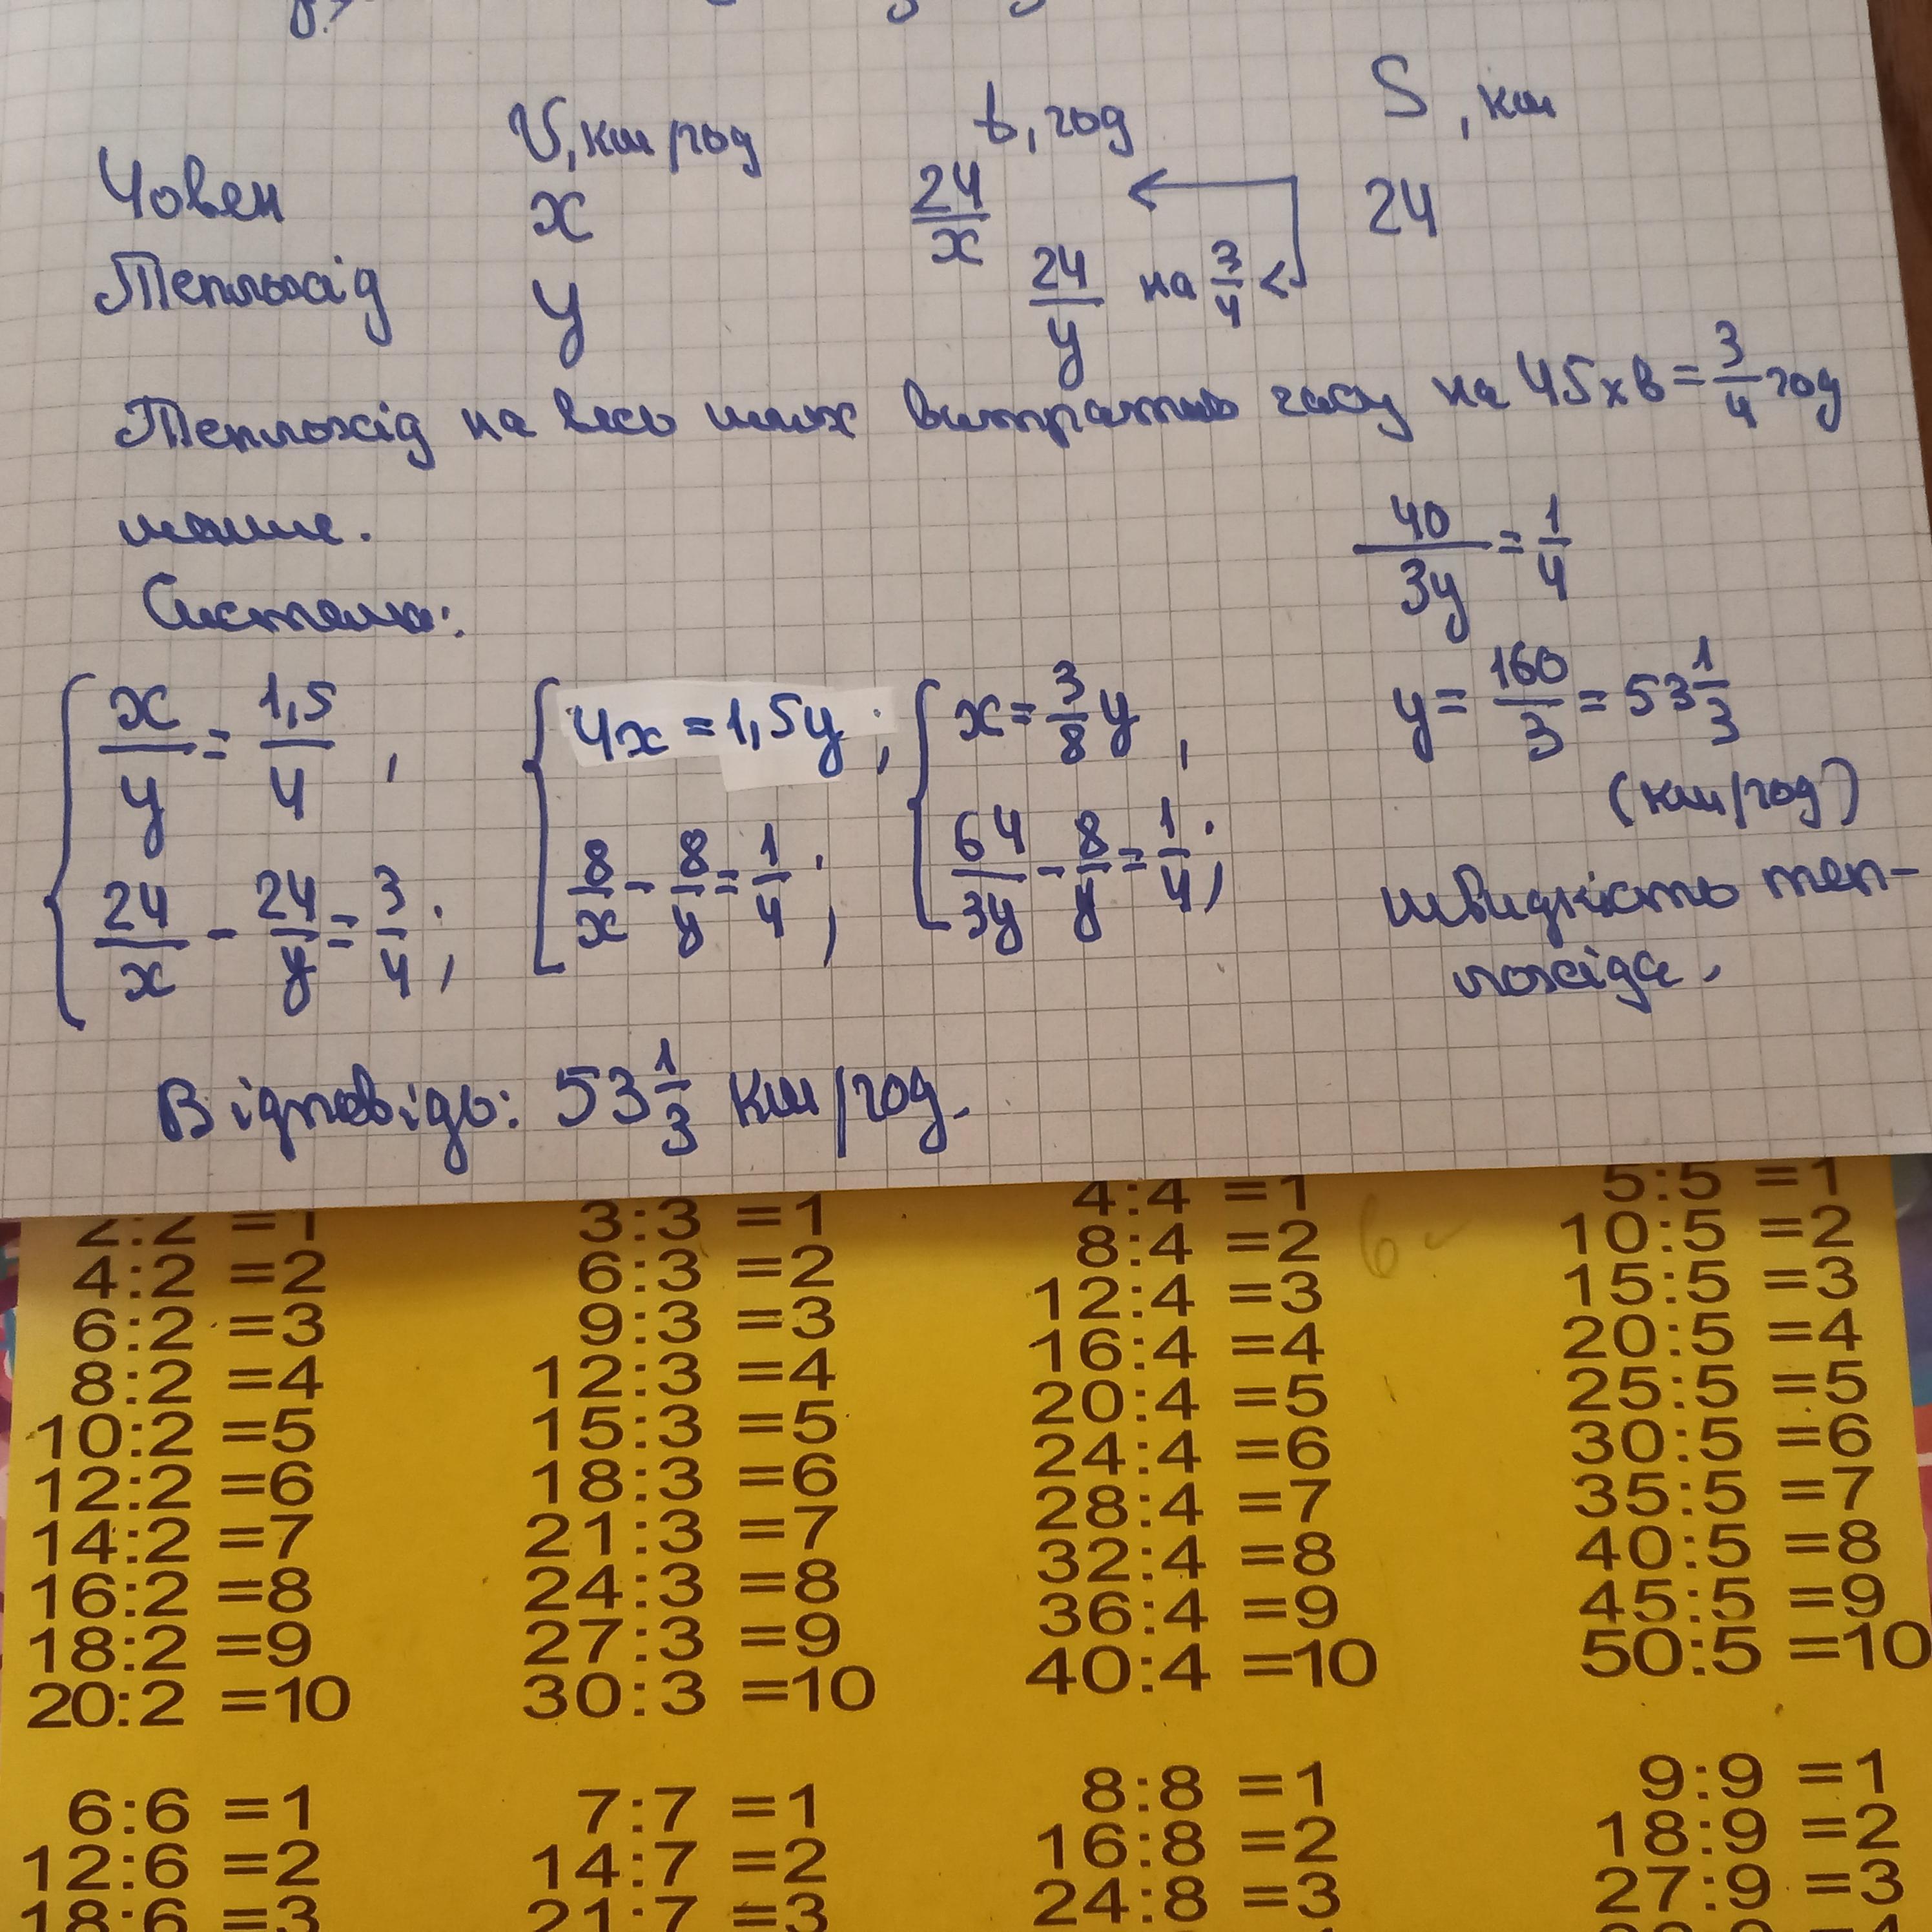 V, км/год t, год S, км
Човен x 24/x 24
Теплохід y 24/y на 3/4 <
Теплохід на весь шлях витратив часу на 45 хв = 3/4 год
менше.
Система:
{ x/y = 1,5/4 , { 4x = 1,5y ; { x = 3/8 y ,
24/x - 24/y = 3/4 ; 8/x - 8/y = 1/4 ; 64/3y - 8/y = 1/4 ;
40/3y = 1/4
y = 160/3 = 53 1/3
(км/год)
швидкість теп-
лохіда.
Відповідь: 53 1/3 км/год.
2:2 =1 3:3 =1 4:4 =1 5:5 =1
4:2 =2 6:3 =2 8:4 =2 10:5 =2
6:2 =3 9:3 =3 12:4 =3 15:5 =3
8:2 =4 12:3 =4 16:4 =4 20:5 =4
10:2 =5 15:3 =5 20:4 =5 25:5 =5
12:2 =6 18:3 =6 24:4 =6 30:5 =6
14:2 =7 21:3 =7 28:4 =7 35:5 =7
16:2 =8 24:3 =8 32:4 =8 40:5 =8
18:2 =9 27:3 =9 36:4 =9 45:5 =9
20:2 =10 30:3 =10 40:4 =10 50:5 =10
6:6 =1 7:7 =1 8:8 =1 9:9 =1
12:6 =2 14:7 =2 16:8 =2 18:9 =2
18:6 =3 21:7 =3 24:8 =3 27:9 =3